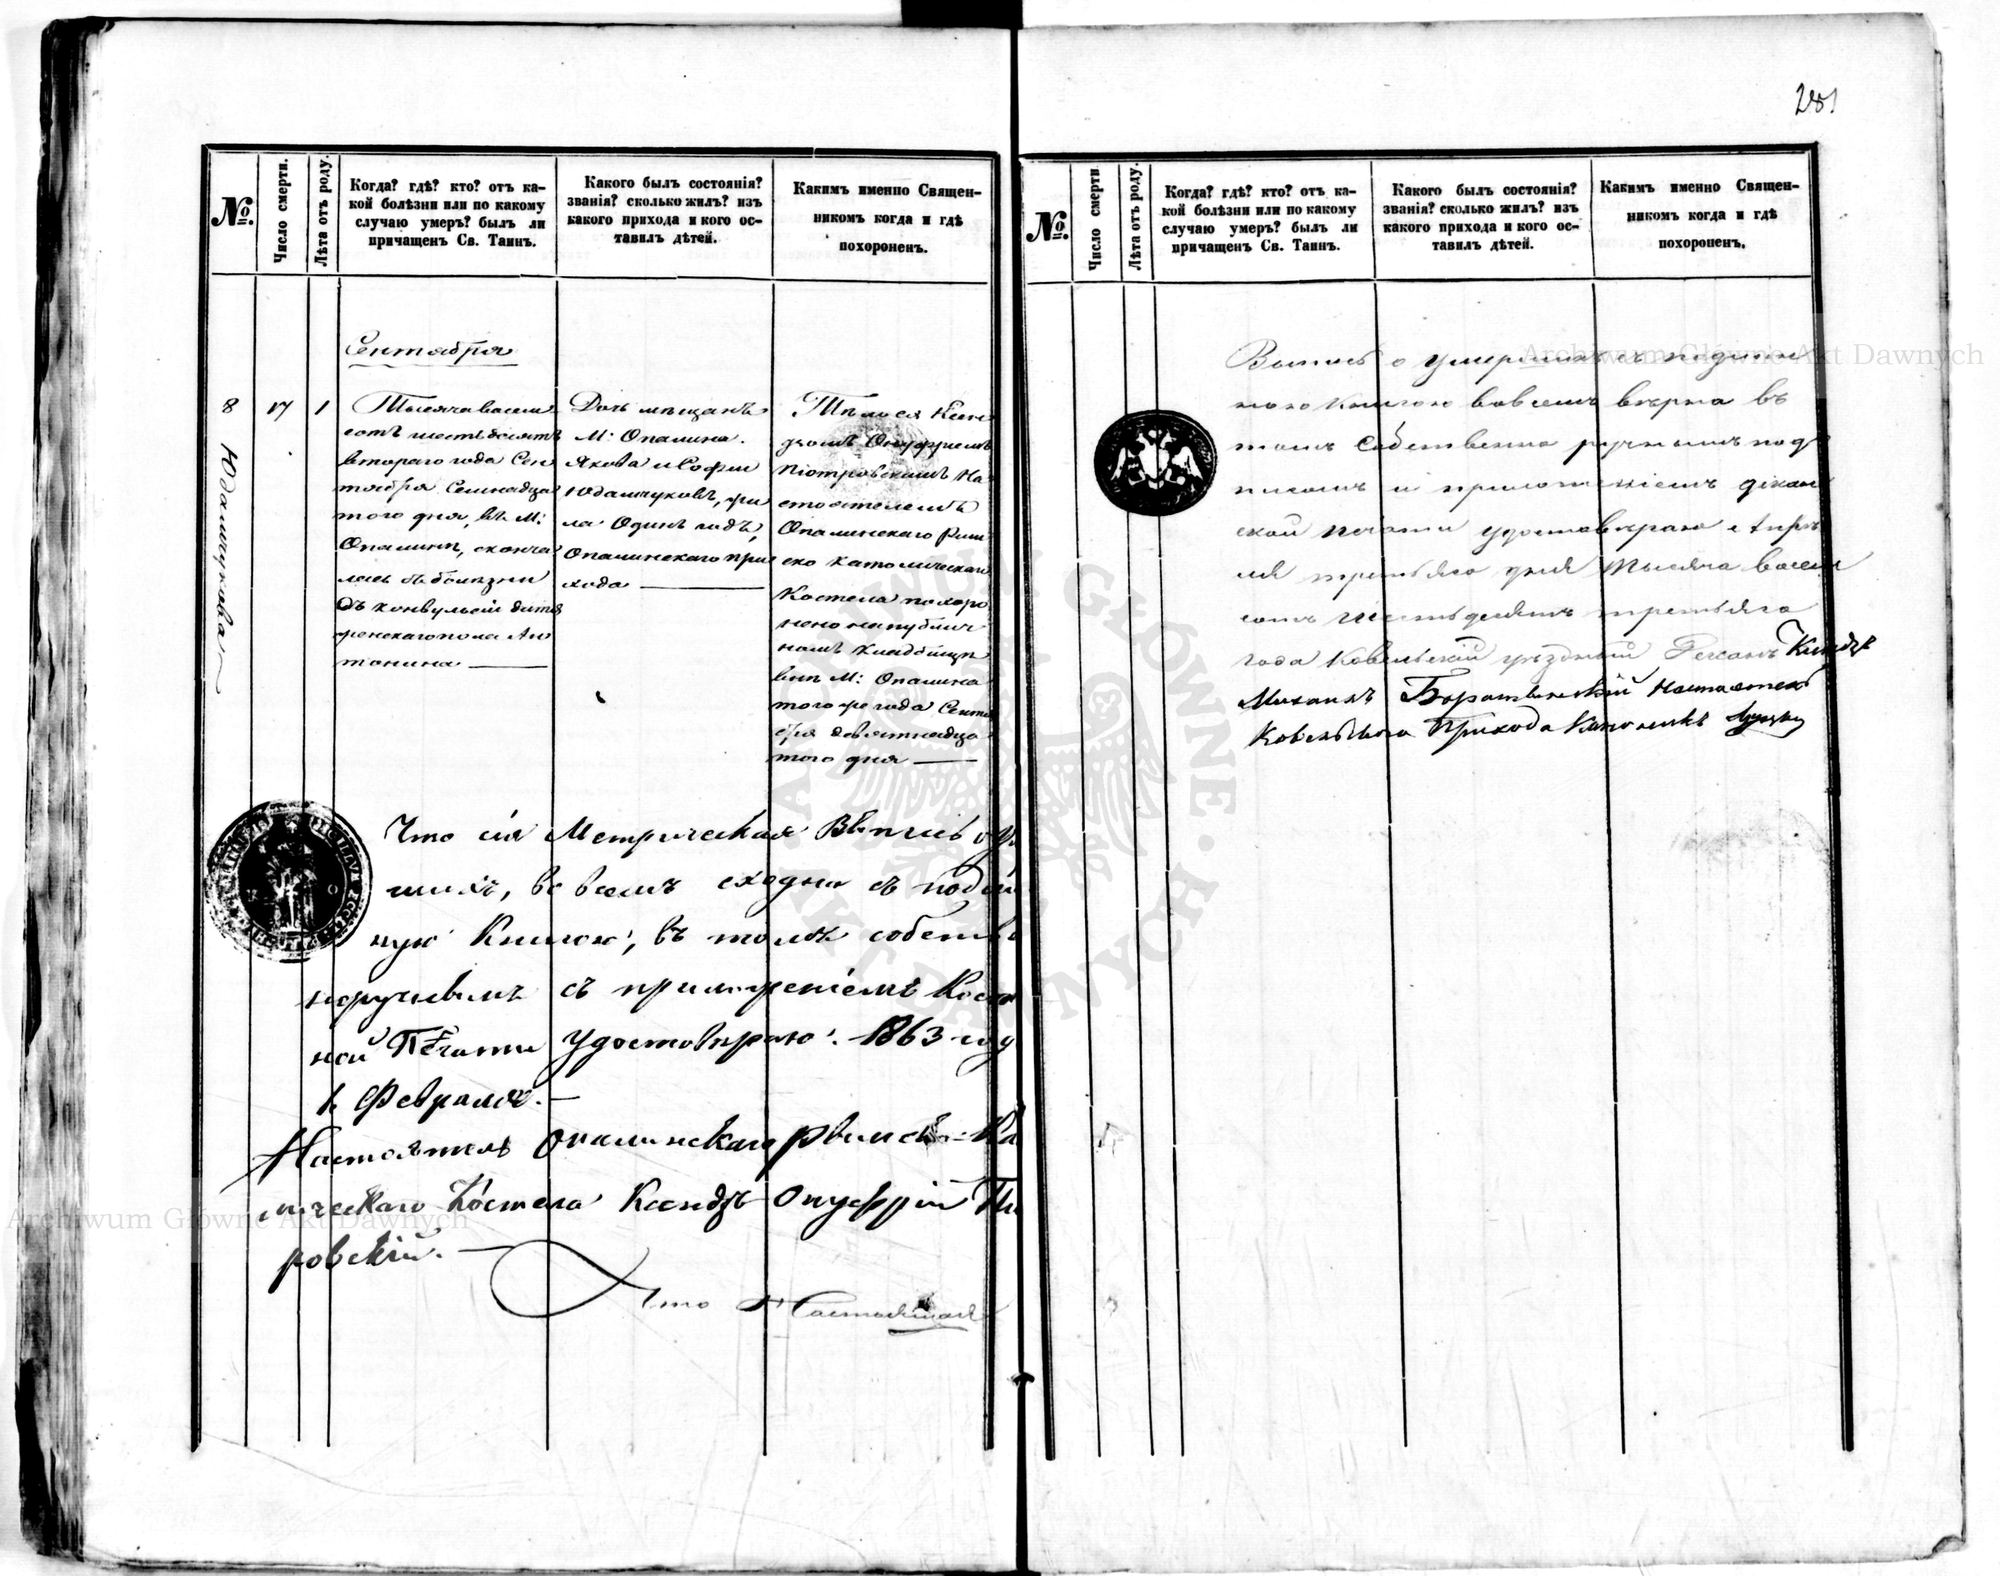 281
№.
Число смерти.
Лѣта отъ роду.
Когда? гдѣ? кто? отъ ка-
кой болѣзни или по какому
случаю умеръ? былъ ли
причащенъ Св. Таинъ.
Какого былъ состоянія?
званія? сколько жилъ? изъ
какого прихода и кого ос-
тавилъ дѣтей.
Какимъ именно Священ-
никомъ когда и гдѣ
похороненъ.
Сентября
8
17
1
Юдамчукова
Тысяча восем
сотъ шестьдесятъ
втораго года Сен
тября Семнадца
того дня, въ М:
Опалинѣ, сконча
лась
конвульсіи дитя
женскаго пола Ан
тонина
Дочь мѣщанъ
М: Опалина.
Якова и Софіи
Юдамчуковъ, жи
ла Одинъ годъ,
Опалинскаго при
хода
Тѣло ея Ксен
дзомъ Онуфріемъ
Піотровскимъ На
стоятелемъ
Опалинскаго Рим
ско католическаго
Костела похоро
нено на публич
номъ кладбищѣ
въ М: Опалина
того же года Сентя
бря девятнадца
того дня
Что сія Метрическая Выпись о у
шихъ, во всемъ сходна съ подли
ною Книгою, въ томъ собств
норучнымъ съ приложеніемъ Кост
ной Печати удостовѣряю. 1863 год
1. Февраля.
Настоятель Опалинскаго Римско-Ка
ическаго Костела Ксендзъ Онуфрій Пі
ровскій.
Что Настоящая
№.
Число смерти.
Лѣта отъ роду.
Когда? гдѣ? кто? отъ ка-
кой болѣзни или по какому
случаю умеръ? былъ ли
причащенъ Св. Таинъ.
Какого былъ состоянія?
званія? сколько жилъ? изъ
какого прихода и кого ос-
тавилъ дѣтей.
Какимъ именно Священ-
никомъ когда и гдѣ
похороненъ.
Выпись о умершихъ съ подлин
ною Книгою вовсемъ вѣрна въ
томъ Собственно ручнымъ под
писомъ и приложеніемъ декан
ской печати удостовѣряю Апрѣ
ля третьяго дня Тысяча восем
сотъ шестьдесятъ третьяго
года Ковельскій уѣздный Деканъ Ксендзъ
Михаилъ Настоятель
Ковельскаго Прихода Каноникъ Луцкій
Archiwum Główne Akt Dawnych
Archiwum Główne Akt Dawnych
ARCHIWUM GŁÓWNE AKT DAWNYCH